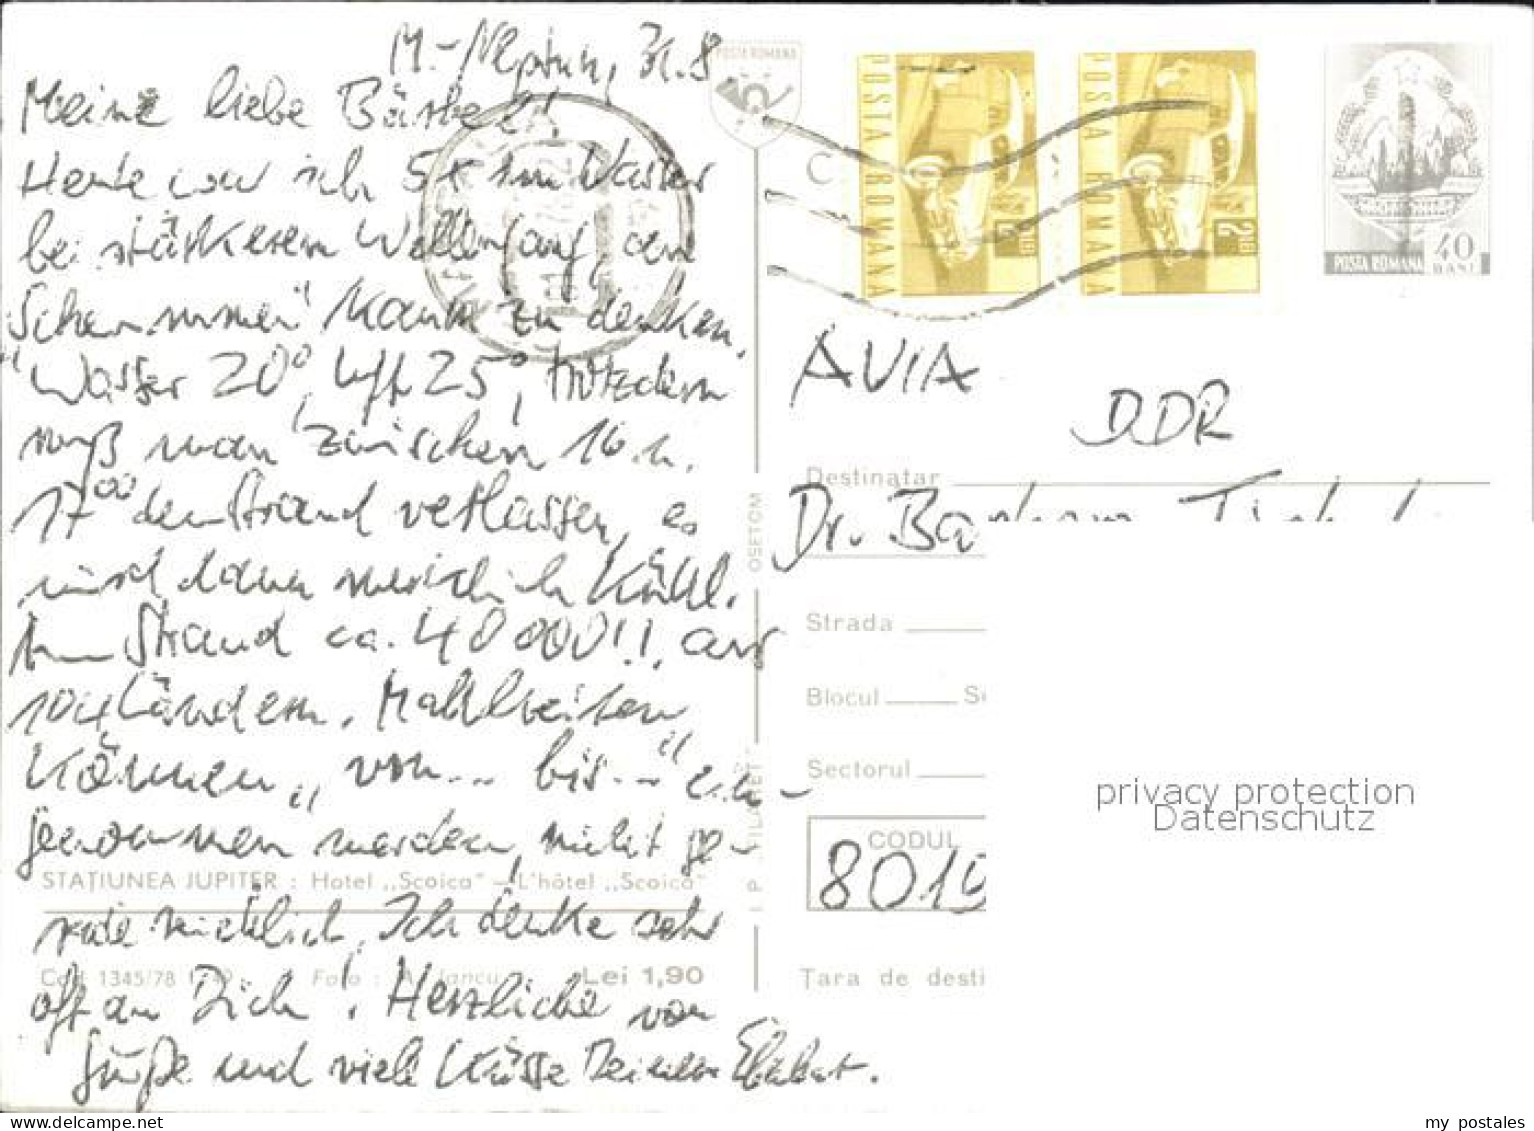 M.-Neptun, 31.8
Meine liebe Bärbel!
Heute war ich 5x im Wasser
bei stärkerem Wellengang, an
"Schwimmen" kaum zu denken.
Wasser 20°, Luft 25°, trotzdem
muß man zwischen 16 u.
17⁰⁰ den Strand verlassen, es
wird dann merklich kühl.
Am Strand ca. 40 000!!, aus
104 Ländern. Mahlzeiten
können „von... bis..." ein-
genommen werden, nicht ge-
rade
Ich denke sehr
oft an Dich! Herzliche
Grüße und viele Küsse Deine
STAȚIUNEA JUPITER : Hotel „Scoica" – L'hôtel „Scoica"
1345/78
Foto : A. Iancu
Lei 1,90
POSTA ROMANA
POSTA ROMANA
POSTA ROMANA
POSTA ROMANA 40 BANI
C
AVIA
DDR
Destinatar
Dr. Barbara
Strada
Blocul
Sectorul
CODUL
8019
Țara de desti
OSETOM
privacy protection
Datenschutz
my postales